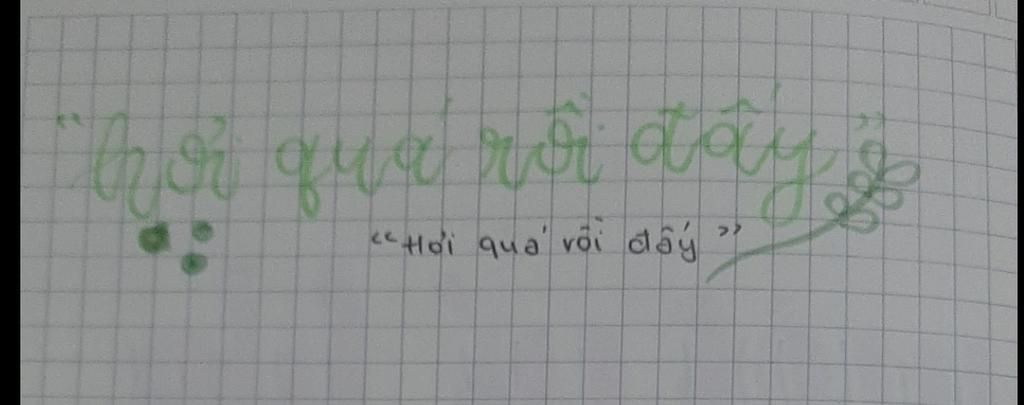 "hơi quá rồi đấy"
"Hơi quá rồi đấy"